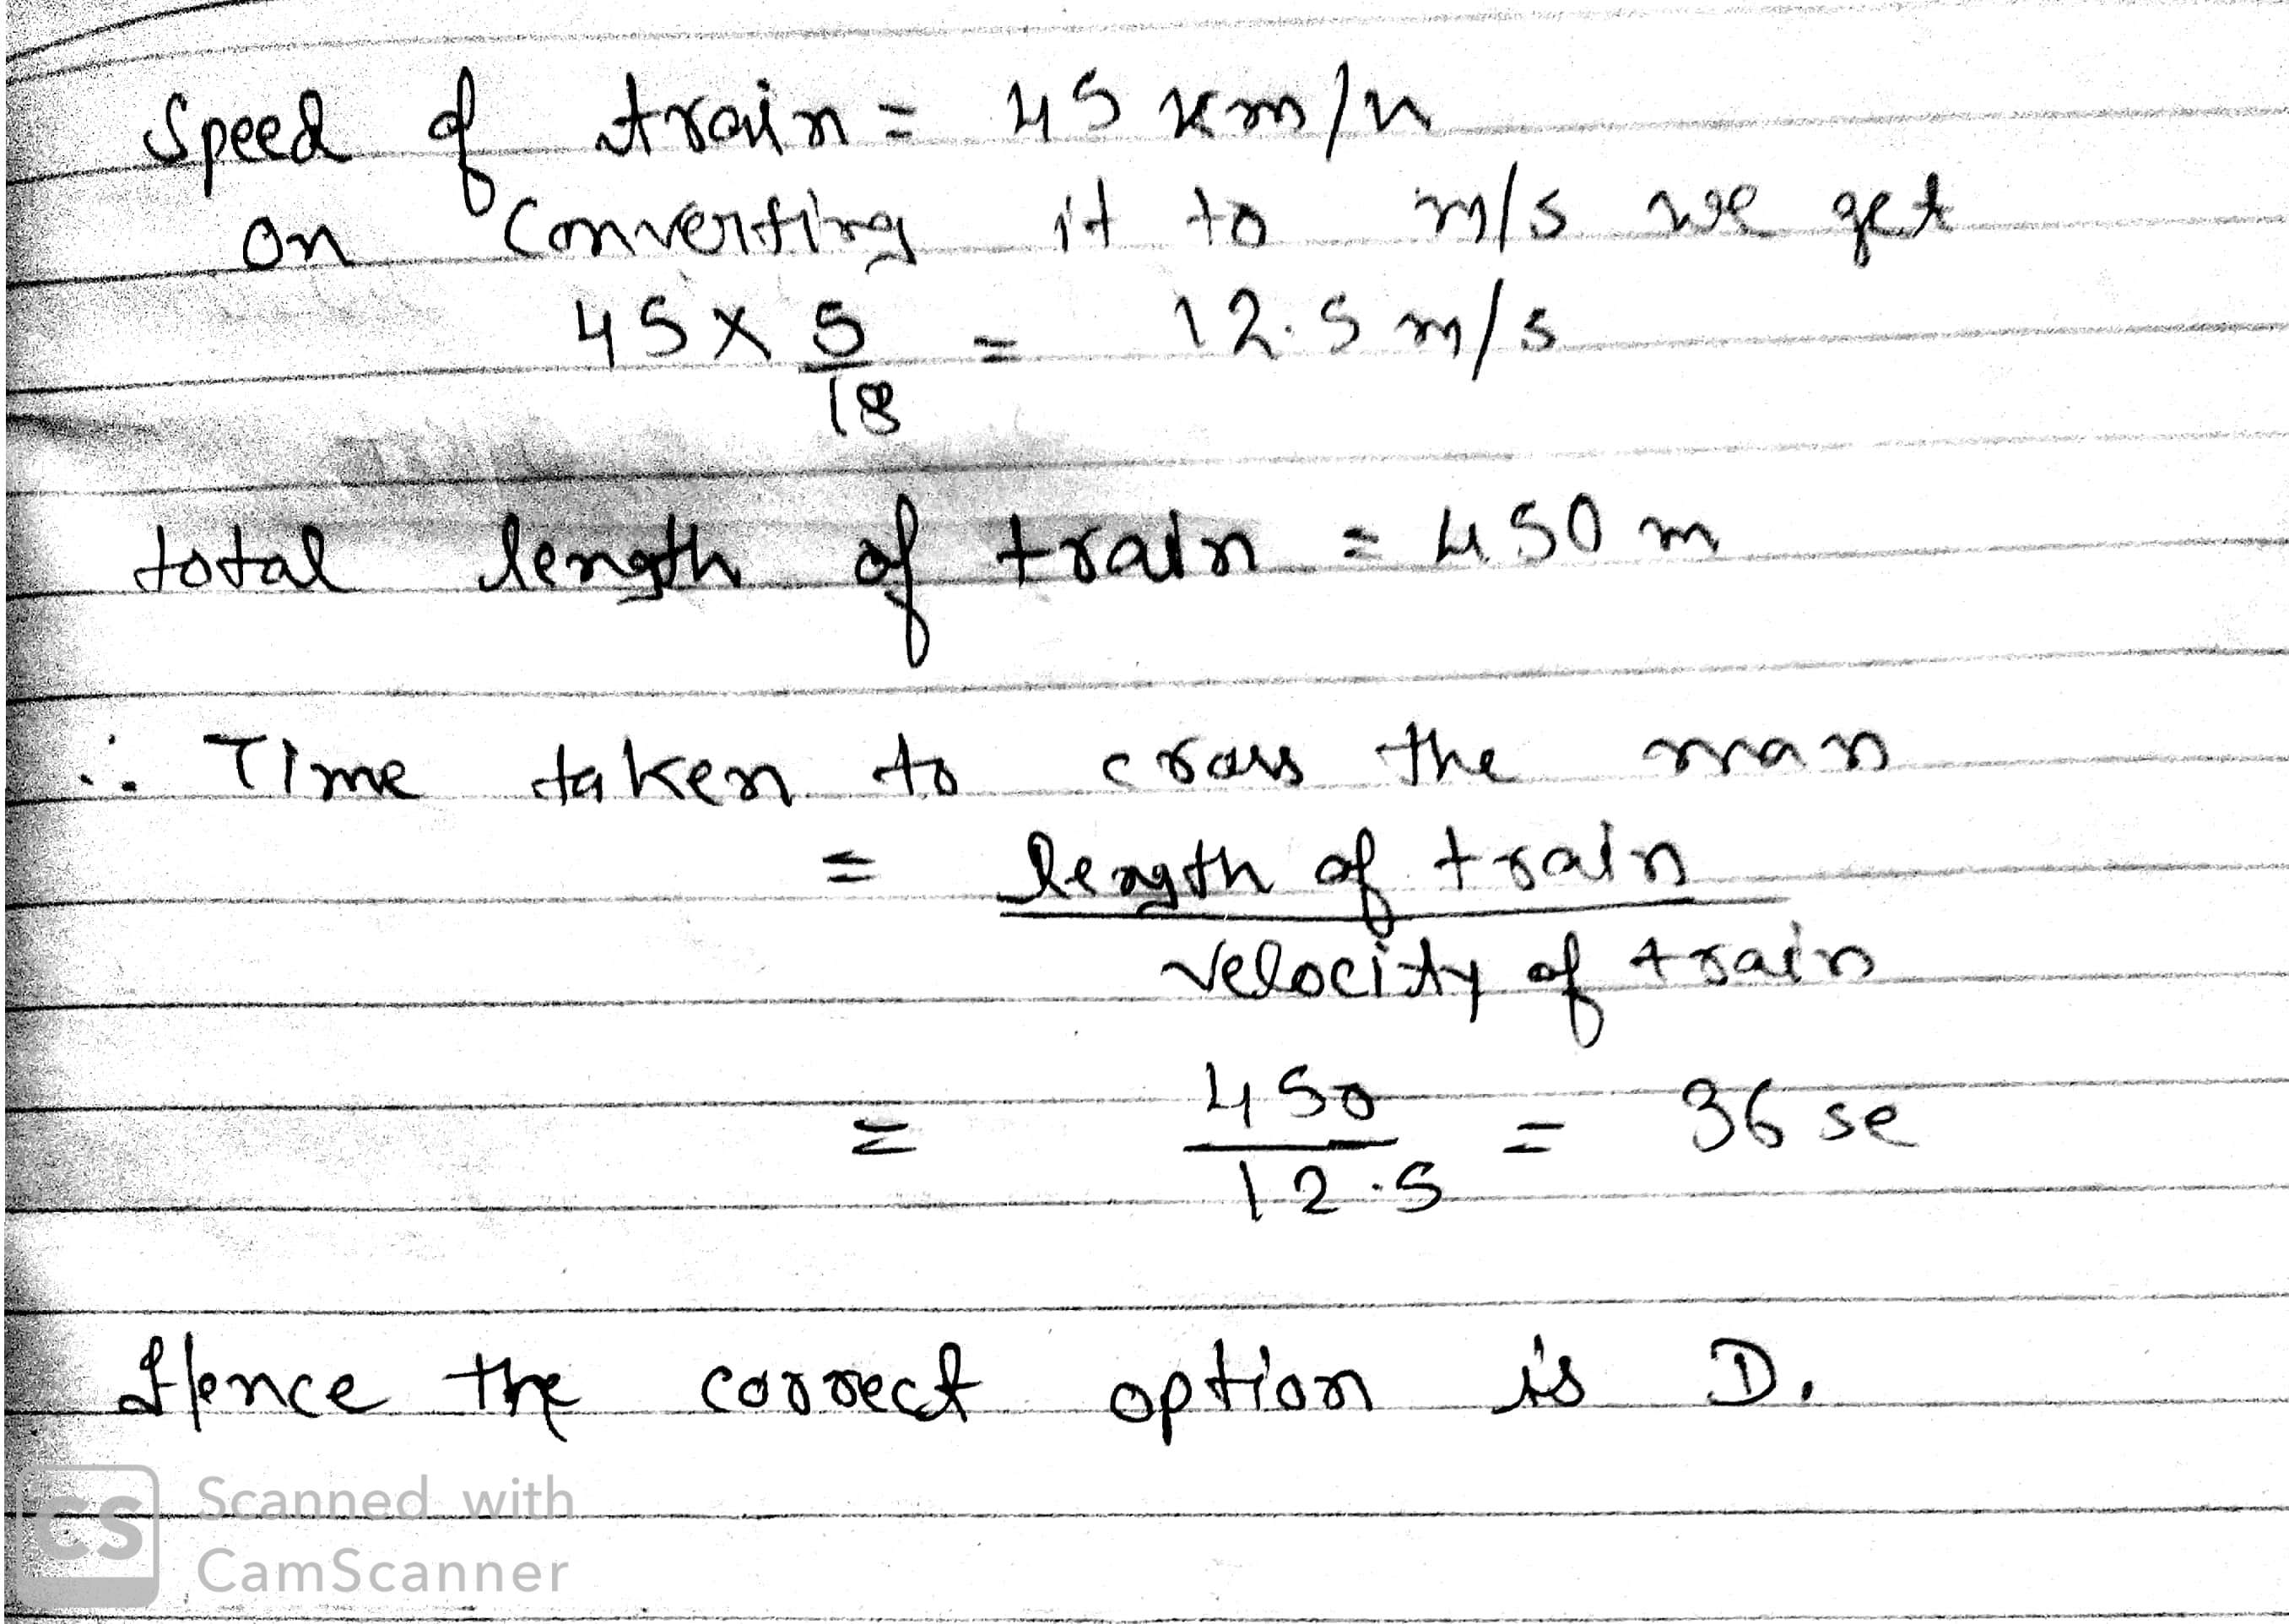 Speed of train = 45 km/h
on converting it to m/s we get
45 x 5/18 = 12.5 m/s
total length of train = 450 m
∴ Time taken to cross the man
= length of train / velocity of train
= 450/12.5 = 36 se
Hence the correct option is D.
CS Scanned with
CamScanner